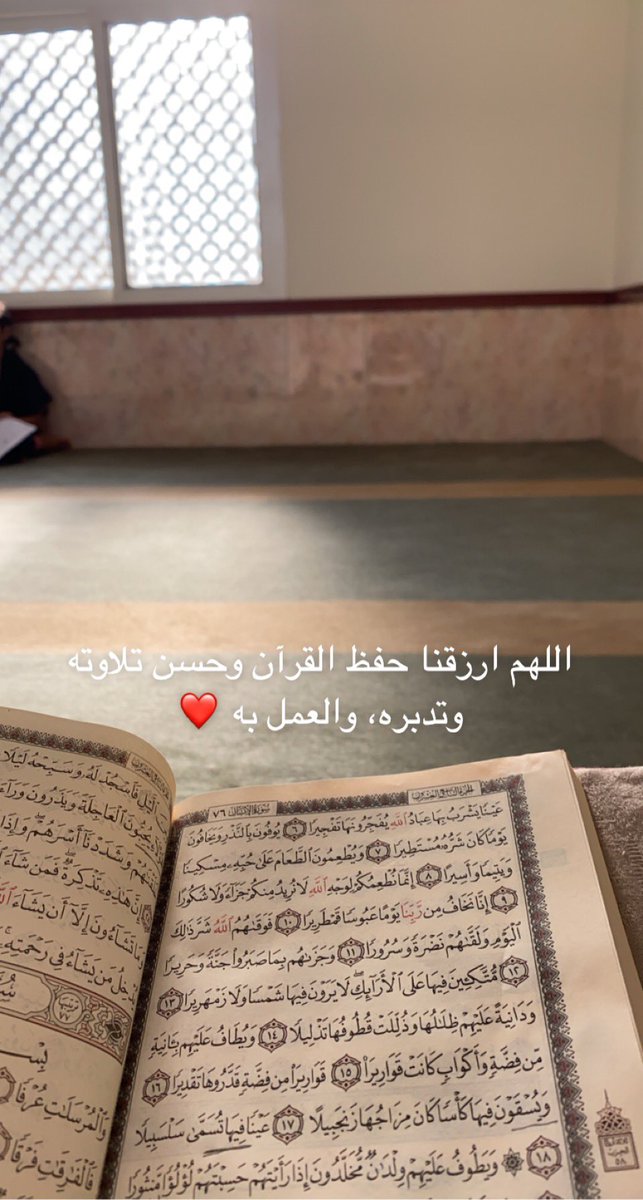 اللهم ارزقنا حفظ القرآن وحسن تلاوته
وتدبره، والعمل به ❤️
سُورَةُ الإِنسَانِ ٧٦
عَيْنًا يَشْرَبُ بِهَا عِبَادُ ٱللَّهِ يُفَجِّرُونَهَا تَفْجِيرًا ٦ يُوفُونَ بِٱلنَّذْرِ وَيَخَافُونَ
يَوْمًا كَانَ شَرُّهُۥ مُسْتَطِيرًا ٧ وَيُطْعِمُونَ ٱلطَّعَامَ عَلَىٰ حُبِّهِۦ مِسْكِينًا
وَيَتِيمًا وَأَسِيرًا ٨ إِنَّمَا نُطْعِمُكُمْ لِوَجْهِ ٱللَّهِ لَا نُرِيدُ مِنكُمْ جَزَآءً وَلَا شُكُورًا
٩ إِنَّا نَخَافُ مِن رَّبِّنَا يَوْمًا عَبُوسًا قَمْطَرِيرًا ١٠ فَوَقَىٰهُمُ ٱللَّهُ شَرَّ ذَٰلِكَ
ٱلْيَوْمِ وَلَقَّىٰهُمْ نَضْرَةً وَسُرُورًا ١١ وَجَزَىٰهُم بِمَا صَبَرُوا۟ جَنَّةً وَحَرِيرًا
١٢ مُّتَّكِـِٔينَ فِيهَا عَلَى ٱلْأَرَآئِكِ لَا يَرَوْنَ فِيهَا شَمْسًا وَلَا زَمْهَرِيرًا ١٣
وَدَانِيَةً عَلَيْهِمْ ظِلَٰلُهَا وَذُلِّلَتْ قُطُوفُهَا تَذْلِيلًا ١٤ وَيُطَافُ عَلَيْهِم بِـَٔانِيَةٍ
مِّن فِضَّةٍ وَأَكْوَابٍ كَانَتْ قَوَارِيرَا۠ ١٥ قَوَارِيرَا۟ مِن فِضَّةٍ قَدَّرُوهَا تَقْدِيرًا ١٦
وَيُسْقَوْنَ فِيهَا كَأْسًا كَانَ مِزَاجُهَا زَنجَبِيلًا ١٧ عَيْنًا فِيهَا تُسَمَّىٰ سَلْسَبِيلًا
١٨ ۞ وَيَطُوفُ عَلَيْهِمْ وِلْدَٰنٌ مُّخَلَّدُونَ إِذَا رَأَيْتَهُمْ حَسِبْتَهُمْ لُؤْلُؤًا مَّنثُورًا
ٱلَّيْلِ فَٱسْجُدْ لَهُۥ وَسَبِّحْهُ لَيْلًا
يُحِبُّونَ ٱلْعَاجِلَةَ وَيَذَرُونَ وَرَآءَ
وَشَدَدْنَآ أَسْرَهُمْ وَإِذَا
إِنَّ هَٰذِهِۦ تَذْكِرَةٌ فَمَن شَآءَ
تَشَآءُونَ إِلَّآ أَن يَشَآءَ ٱللَّهُ
مَن يَشَآءُ فِى رَحْمَتِهِۦ
وَٱلْمُرْسَلَٰتِ عُرْفًا
فَٱلْفَٰرِقَٰتِ فَرْقًا